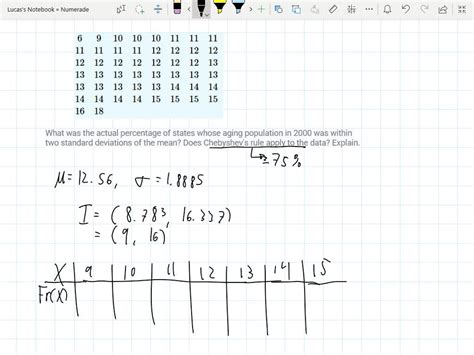 Lucas's Notebook • Numerade
6 9 10 10 10 11 11 11
11 11 11 11 12 12 12 12
12 12 12 12 12 12 12 13
13 13 13 13 13 13 13 13
13 13 13 13 13 14 14 14
14 14 14 14 15 15 15 15
16 18
What was the actual percentage of states whose aging population in 2000 was within
two standard deviations of the mean? Does Chebyshev's rule apply to the data? Explain.
≥ 75%
μ = 12.56, σ = 1.8885
I = (8.783, 16.337)
= (9, 16)
X 9 10 11 12 13 14 15
Fr(X)